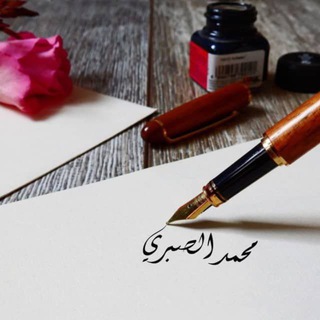 محمد الصبري